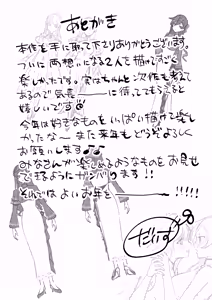 あとがき
本作も手に取って下さりありがとうございます。
ついに両想いになる2人で描けてすごく
楽しかったです。実はちゃんと次作も考えて
あるので気長――に待っててもらえると
嬉しいです
今年は好きなものをいっぱい描けて楽し
かったな〜 また来年もどうぞよろしく
お願いします♪♪
みなさんが楽しめるようなものをお見せ
できるようにガンバります!!
それではよいお年を――!!!!!
だいず